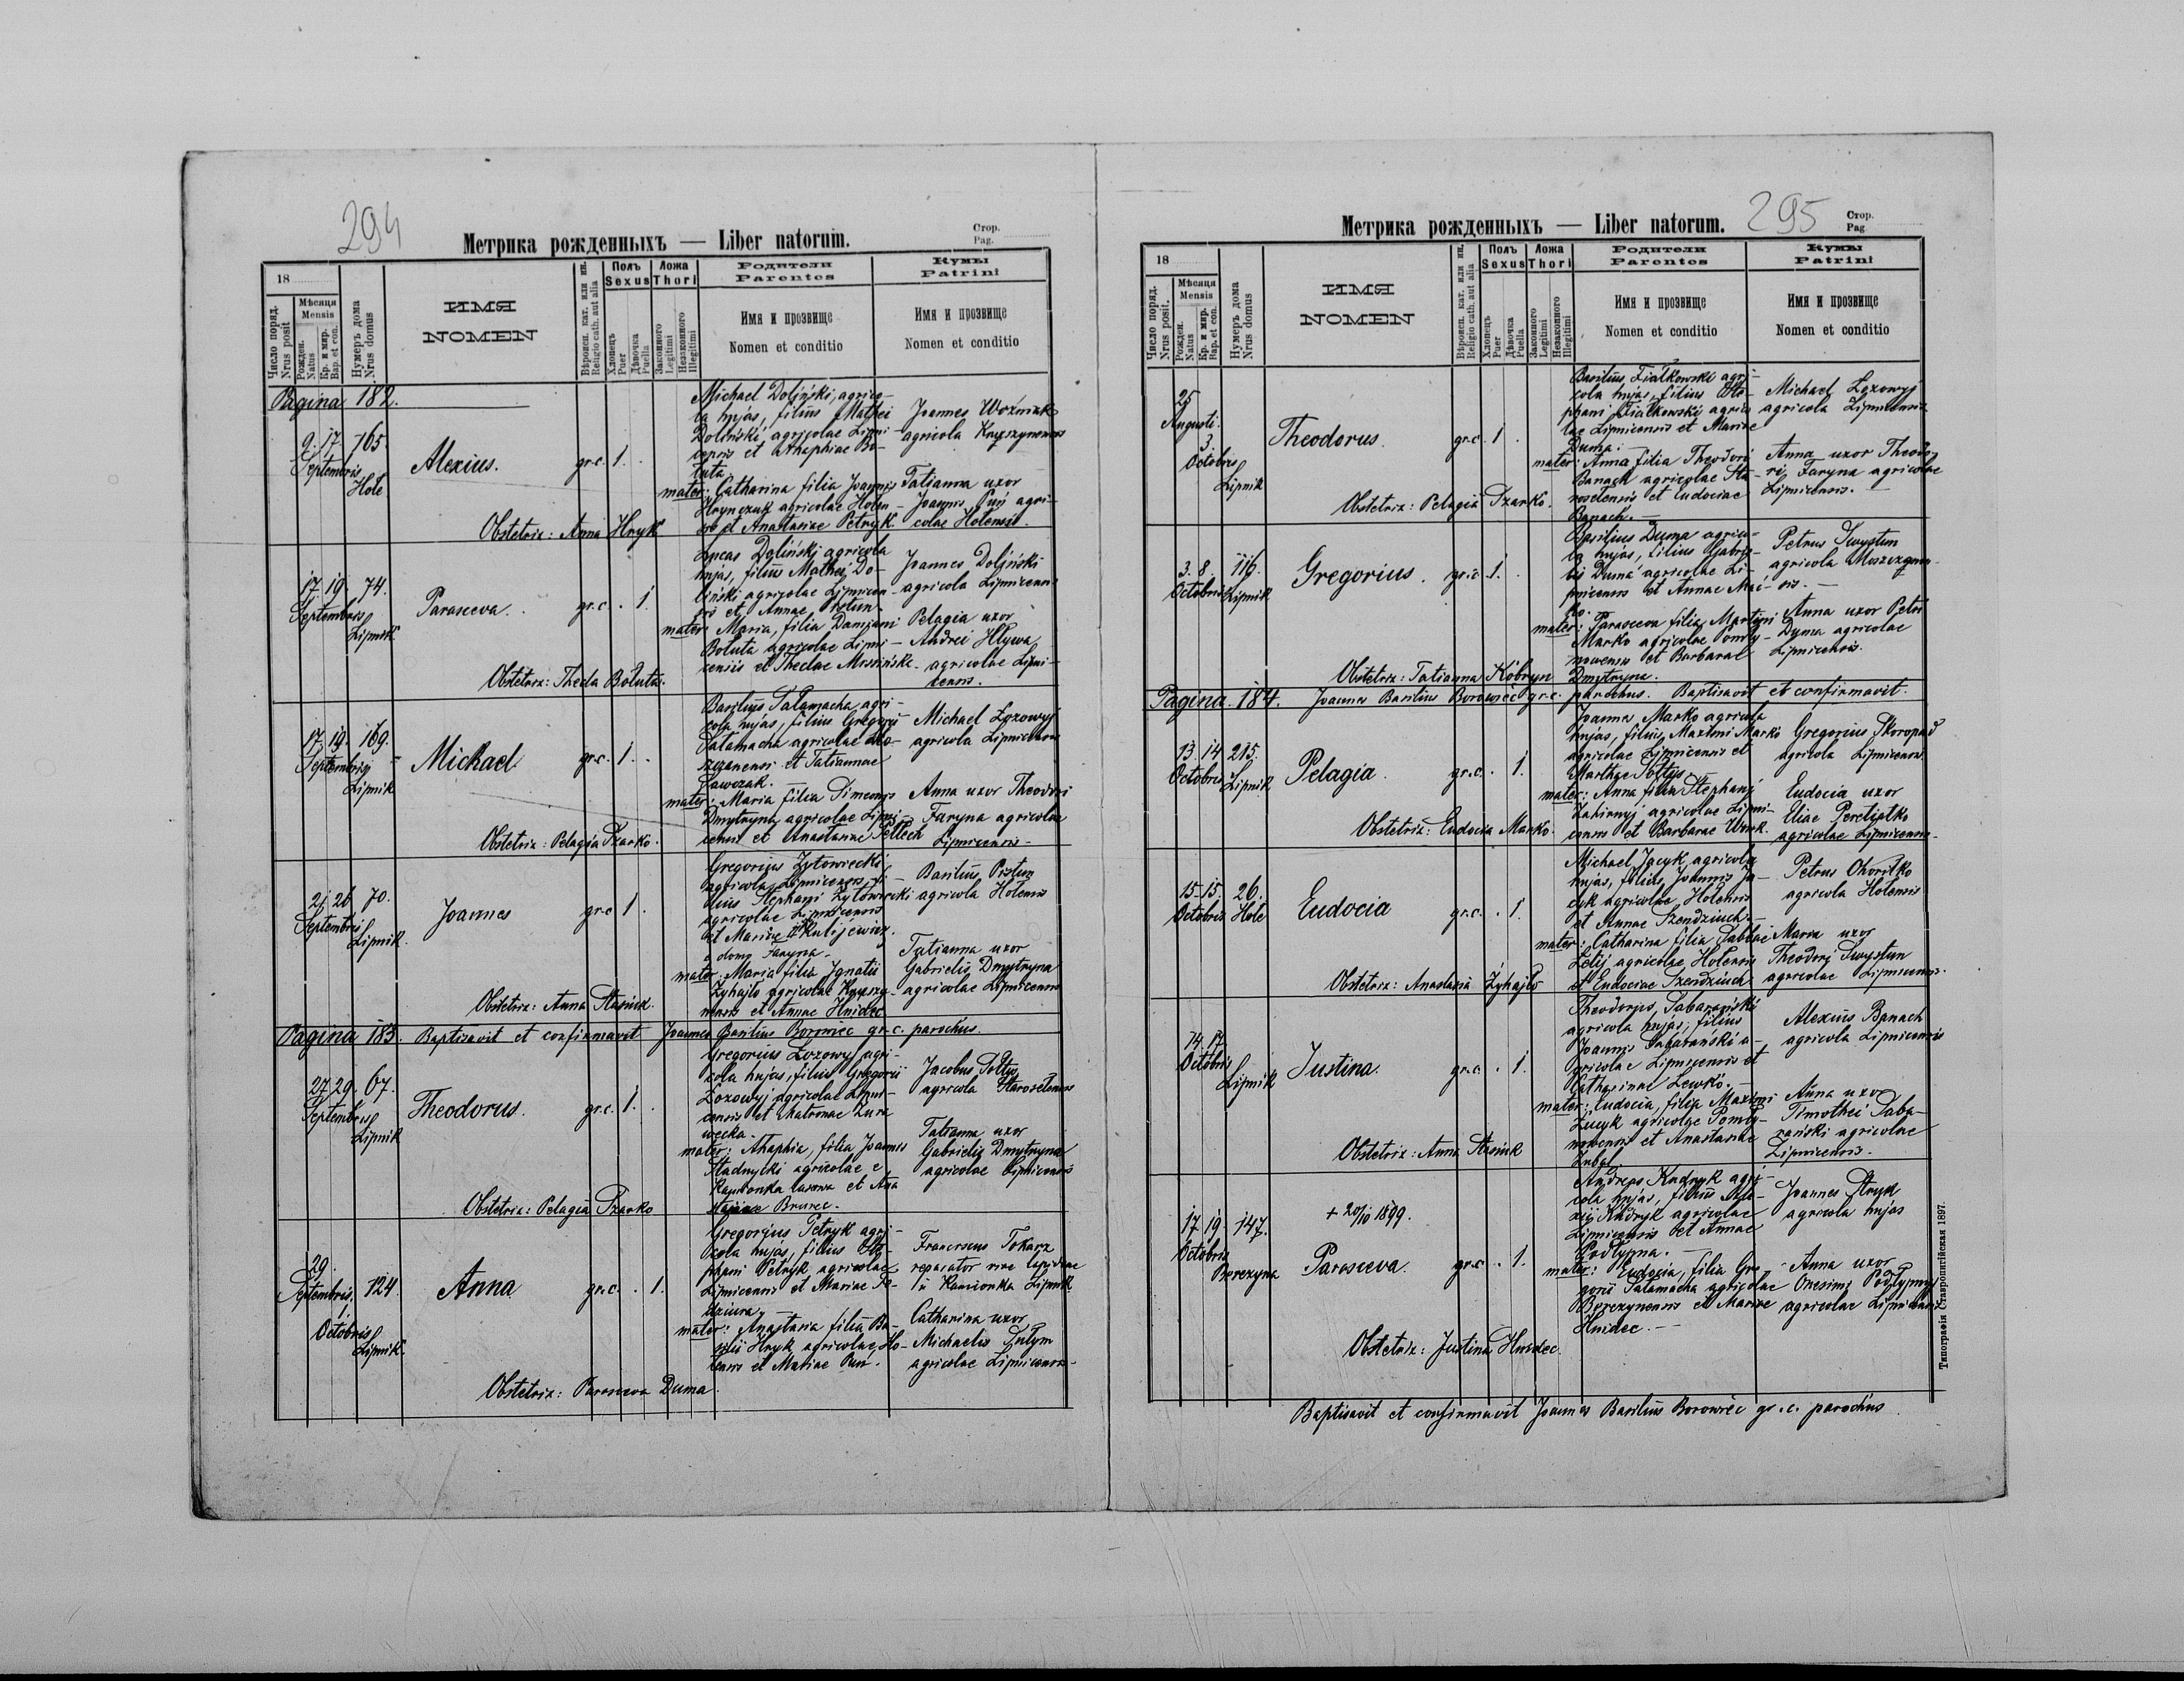 294
Метрика рожденныхъ — Liber natorum.
Стор.
Pag.
18
Число поряд.
Nrus posit
Мѣсяця
Mensis
Рожден.
Natus
Кр. и мир.
Bap. et con.
Нумеръ дома
Nrus domus
ИМЯ
NOMEN
Вѣроисп. кат. или ин.
Religio cath. aut alia
Полъ
Sexus
Хлопець
Puer
Дѣвочка
Puella
Ложа
Thori
Законного
Legitimi
Незаконного
Illegitimi
Родители
Parentes
Имя и прозвище
Nomen et conditio
Кумы
Patrini
Имя и прозвище
Nomen et conditio
Pagina 182.
9. 17. 165.
Septembris
Hole
Alexius.
gr.c. 1.
Michael Doliński, agrico-
la hujas, filius Mathei
Doliński agricolae Lipni-
censis et Ahaphiae Bo-
łuta.
mater: Catharina filia Joannis
Hrynczuk agricolae Holen-
sis et Anastasiae Petryk
Joannes Woźniak
agricola
Tatianna uxor
Joannis Puń agri-
colae Holensis.
Obstetrix: Anna Hryk
17. 19. 74.
Septembris
Lipnik
Parasceva.
gr.c. 1.
Lucas Doliński agricola
hujas, filius Mathei Do-
liński agricolae Lipnicen-
sis et Annae Pistun.
mater: Maria, filia Damiani
Bołuta agricolae Lipni-
censis et Theclae
Joannes Doliński
agricola Lipnicensis
Pelagia uxor
Andrei Hływa
agricolae Lipni-
censis.
Obstetrix: Thecla Bołuta.
17. 19. 169.
Septembris
Lipnik
Michael
gr.c. 1.
Basilius Sałamacha agri-
cola hujas, filius Gregorii
Sałamacha agricolae
et Tatiannae
Sawczak.
mater: Maria filia Simeonis
Dmytryna agricolae Lipni-
censis et Anastasiae Pellech
Michael Łozowyj
agricola Lipnicensis
Anna uxor Theodori
Faryna agricolae
Lipnicensis.
Obstetrix: Pelagia Szarko.
21. 26. 70.
Septembris
Lipnik.
Joannes
gr.c 1.
Gregorius Żytowiecki
agricola Lipnicensis, fi-
lius Stephani Żytowiecki
agricolae Lipnicensis
et Mariae
e domo Faryna.
mater: Maria filia Ignatii
Żyhajło agricolae
et Annae Hnidec
Basilius Pistun
agricola Holensis
Tatianna uxor
Gabrielis Dmytryna
agricolae Lipnicensis
Obstetrix: Anna Stasiuk.
Pagina 183. Baptisavit et confirmavit Joannes Basilius Borowiec gr.c. parochus.
27. 29. 67.
Septembris
Lipnik
Theodorus.
gr.c. 1.
Gregorius Łozowyj agri-
cola hujas, filius Gregorii
Łozowyj agricolae Lipni-
censis et Matronae Żura
wecka.
mater: Ahaphia, filia Joannis
Stadnycki agricolae e
Kamionka lasowa et Ana
stasiae
Jacobus Sołtys
agricola
Tatianna uxor
Gabrielis Dmytryna
agricolae Lipnicensis
Obstetrix: Pelagia Szarko
29.
Septembris
1.
Octobris
124.
Lipnik.
Anna
gr.c. 1.
Gregorius Petryk agri-
cola hujas, filius Ste-
phani Petryk agricolae
Lipnicensis et Mariae
mater: Anastasia filia Ba-
silii Hryk agricolae Ho-
lensis et Mariae Puń.
Franciscus Tokarz
reparator viae lapideae
in Kamionka Lipnik
Catharina uxor
Michaelis
agricolae Lipnicensis.
Obstetrix: Parasceva Duma.
295
Метрика рожденныхъ — Liber natorum.
Стор.
Pag
18
Число поряд.
Nrus posit.
Мѣсяця
Mensis
Рожден.
Natus
Кр. и мир.
Bap. et con.
Нумеръ дома
Nrus domus
ИМЯ
NOMEN
Вѣроисп. кат. или ин.
Religio cath. aut alia
Полъ
Sexus
Хлопець
Puer
Дѣвочка
Puella
Ложа
Thori
Законного
Legitimi
Незаконного
Illegitimi
Родители
Parentes
Имя и прозвище
Nomen et conditio
Кумы
Patrini
Имя и прозвище
Nomen et conditio
25
Augusti.
3.
Octobris
Lipnik
Theodorus.
gr.c. 1.
Basilius Fiałkowski agri-
cola hujas, filius Ste-
phani Fiałkowski agrico
lae Lipnicensis et Mariae
Duma.
mater: Anna filia Theodori
Banach agricolae Sta-
roselensis et Eudociae
Banach.
Michael Łozowyj
agricola Lipnicensis
Anna uxor Theodo-
ri Faryna agricolae
Lipnicensis.
Obstetrix: Pelagia Szarko.
3. 8. 116.
Octobris Lipnik
Gregorius.
gr.c. 1.
Basilius Duma agrico-
la hujas, filius Gabrie-
lis Duma agricolae Li-
pnicensis et Annae
mater: Parasceva filia Martini
Marko agricolae Pomły-
novensis et Barbarae
Dmytryna.
Petrus Swystun
agricola
Anna uxor Petri
Duma agricolae
Lipnicensis.
Obstetrix: Tatianna Kobryn
Pagina 184. Joannes Basilius Borowiec gr.c. parochus. Baptisavit et confirmavit.
13. 14. 215.
Octobris Lipnik
Pelagia.
gr.c. 1.
Joannes Marko agricola
hujas, filius Maximi Marko
agricolae Lipnicensis et
Marthae Sołtys.
mater: Anna filia Stephani
agricolae Lipni-
censis et Barbarae
Gregorius Skoropad
agricola Lipnicensis.
Eudocia uxor
Eliae
agricolae Lipnicensis.
Obstetrix: Eudocia Marko.
15. 15. 26.
Octobris Hole
Eudocia
gr.c. 1.
Michael Jacyk agricola
hujas, filius Joannis Ja-
cyk agricolae Holensis
et Annae Szendziuch.
mater: Catharina filia Sabbae
agricolae Holensis
et Eudociae Szendziuch
Petrus
agricola Holensis
Maria uxor
Theodori Swystun
agricolae Lipnicensis.
Obstetrix: Anastasia Żyhajło
14. 17.
Octobris
Lipnik
Justina.
gr.c. 1.
Theodorus Sabarański
agricola hujas, filius
Joannis Sabarański a-
gricolae Lipnicensis et
Catharinae Lewko.
mater: Eudocia, filia Maximi
agricolae Pomły-
novensis et Anastasiae
Zubal
Alexius Banach
agricola Lipnicensis
Anna uxor
Timothei Saba-
rański agricolae
Lipnicensis.
Obstetrix: Anna Stasiuk
17. 19. 147.
Octobris
Berezyna
+ 20/10 1899.
Parasceva.
gr.c. 1.
Andreas Kudryk agri-
cola hujas, filius Ale-
xii Kudryk agricolae
Lipnicensis et Annae
Podłypna.
mater: Eudocia, filia Gre-
gorii Sałamacha agricolae
Berezynensis et Mariae
Hnidec.
Joannes Stryk
agricola hujas
Anna uxor
Onesimi Podłypnyj
agricolae Lipnicensis
Obstetrix: Justina Hnidec.
Baptisavit et confirmavit Joannes Basilius Borowiec gr.c. parochus
Типографія Ставропигійская 1897.